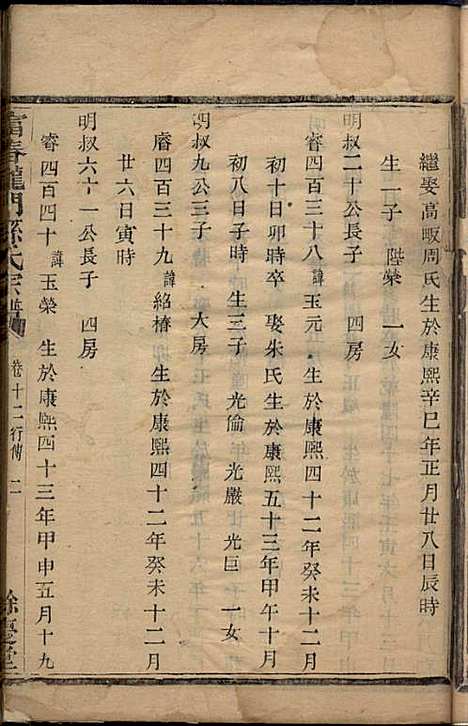 繼娶高畈周氏生於康熙辛巳年正月廿八日辰時
生一子 陞榮 一女
明叔二十公長子 四房
睿四百三十八諱玉元 生於康熙四十二年癸未十二月
初十日卯時卒 娶朱氏生於康熙五十三年甲午十月
初八日子時 生三子 光倫 光嚴 光巨 一女
明叔九公三子 大房
睿四百三十九諱紹椿 生於康熙四十二年癸未十二月
廿六日寅時
明叔六十一公長子 四房
睿四百四十諱玉榮 生於康熙四十三年甲申五月十九
富春龍門孫氏宗譜 卷十二行傳 二 餘慶堂